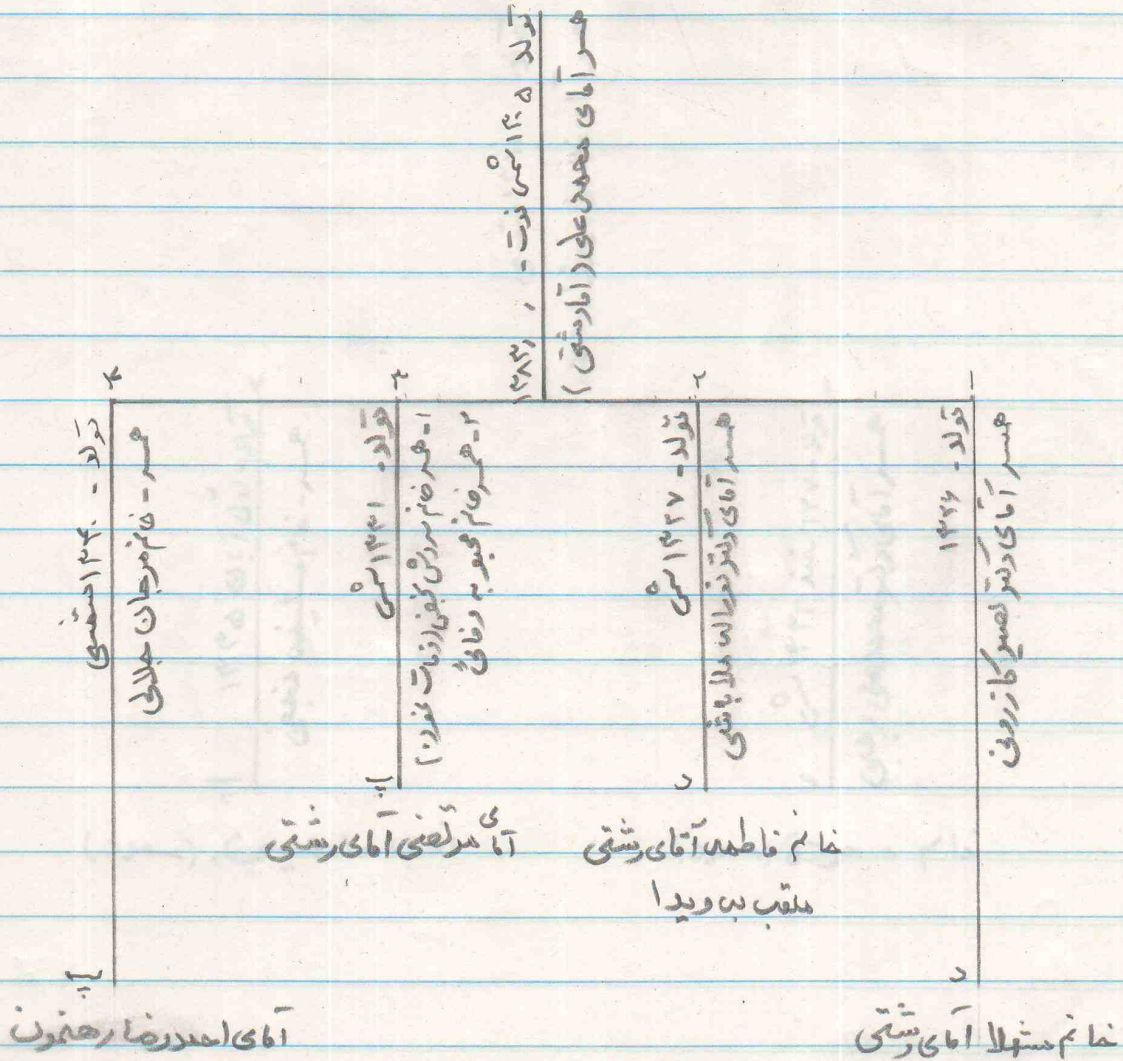 تولد ۱۳۰۵ شمسی فوت - ، ۱۳۸۳
همسر آقای محمد علی (آقا رشتی)
۱
تولد - ۱۳۲۶
همسر آقای دکتر نصیر کازرونی
د
خانم شهلا آقای رشتی
۲
تولد - ۱۳۲۷ شمسی
همسر آقای دکتر نورالله ملا باشی
د
خانم فاطمه آقای رشتی
ملقب به ویدا
۳
تولد - ۱۳۳۱ شمسی
۱- همسر خانم سروش (وفات نمود)
۲- همسر خانم محبوبه وفائی
پ
آقای مرتضی آقای رشتی
۴
تولد - ۱۳۴۰ شمسی
همسر - خانم مرجان جلالی
پ
آقای احمدرضا رهنمون